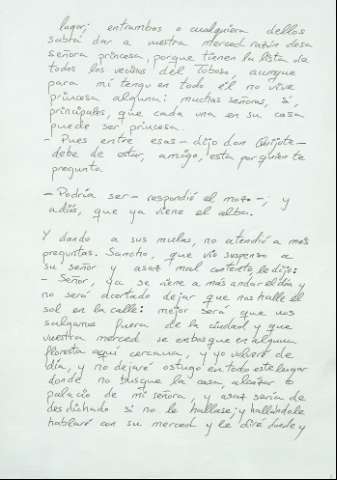 lugar; entrambos o cualquiera dellos
sabrá dar a vuestra merced razón desa
señora princesa, porque tienen la lista de
todos los vecinos del Toboso, aunque
para mí tengo en todo él no vive
princesa alguna: muchas señoras, sí,
principales, que cada una en su casa
puede ser princesa.
- Pues entre esas - dijo don Quijote -
debe de estar, amigo, esta por quien te
pregunto
- Podría ser - respondió el mozo -; y
adiós, que ya viene el alba.
Y dando a sus mulas, no atendió a más
preguntas. Sancho, que vio suspenso a
su señor y asaz mal contento, le dijo:
- Señor, ya se viene a más andar el día y
no será acertado dejar que nos halle el
sol en la calle: mejor será que nos
salgamos fuera de la ciudad y que
vuestra merced se embosque en alguna
floresta aquí cercana, y yo volveré de
día, y no dejaré ostugo en todo este lugar
donde no busque la casa, alcázar o
palacio de mi señora, y asaz sería de
desdichado si no le hallase; y hallándole
hablaré con su merced y le diré dónde y